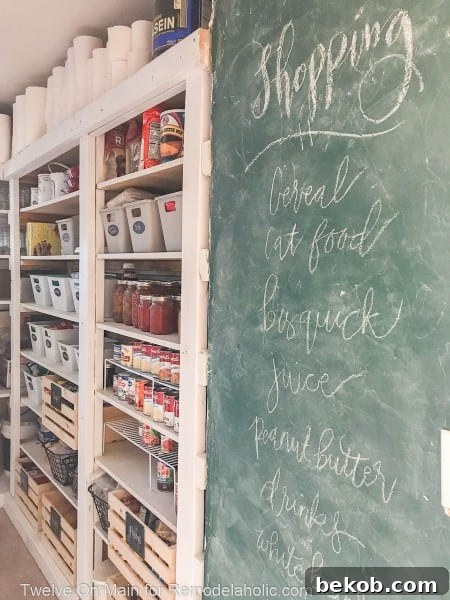 Shopping
Cereal
cat food
bisquick
juice
peanut butter
drinks
Twelve On Main for Remodelaholic.com
bekob.com